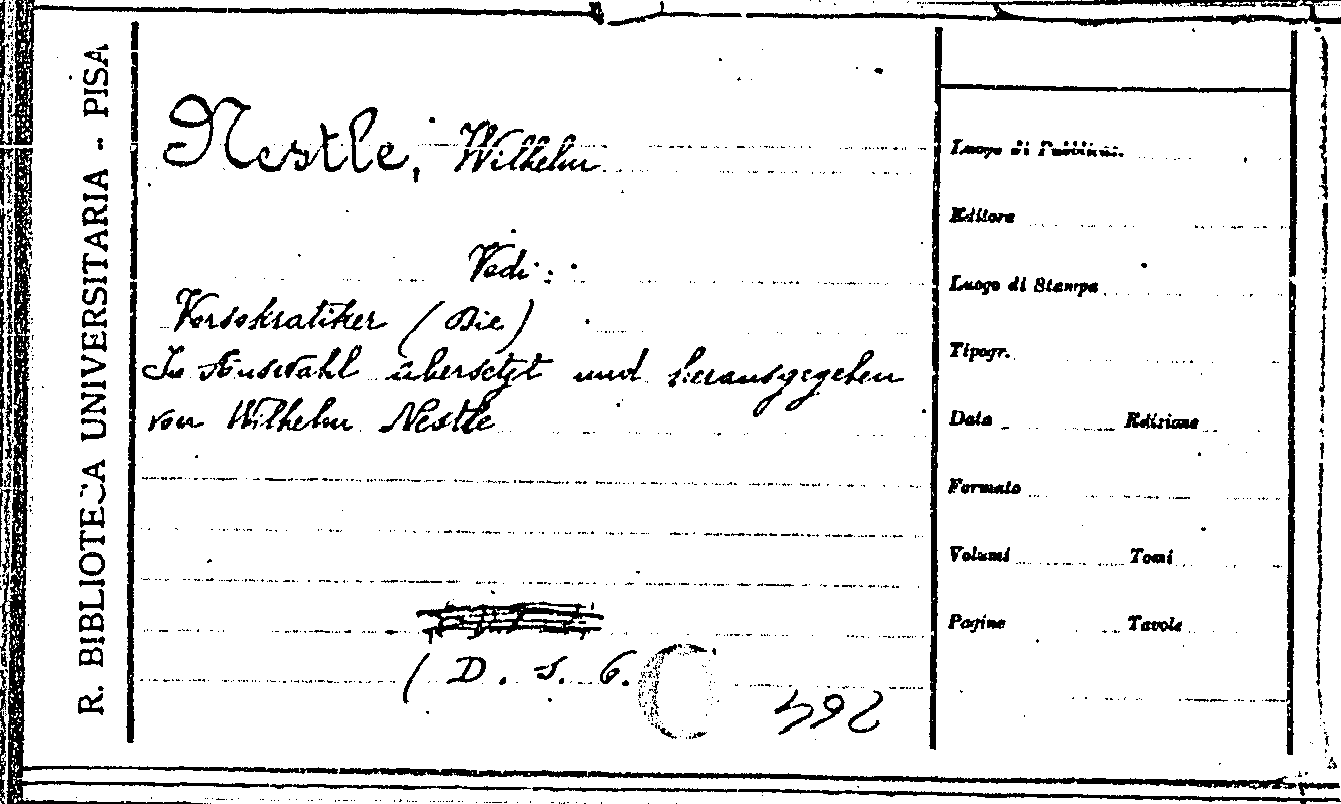 R. BIBLIOTECA UNIVERSITARIA - PISA
Nestle, Wilhelm
Vedi:
Vorsokratiker (Die)
In Auswahl übersetzt und herausgegeben
von Wilhelm Nestle
( D. S. G.
Luogo di Pubblicaz.
Editore
Luogo di Stampa
Tipogr.
Data Edizione
Formato
Volumi Tomi
Pagine Tavole